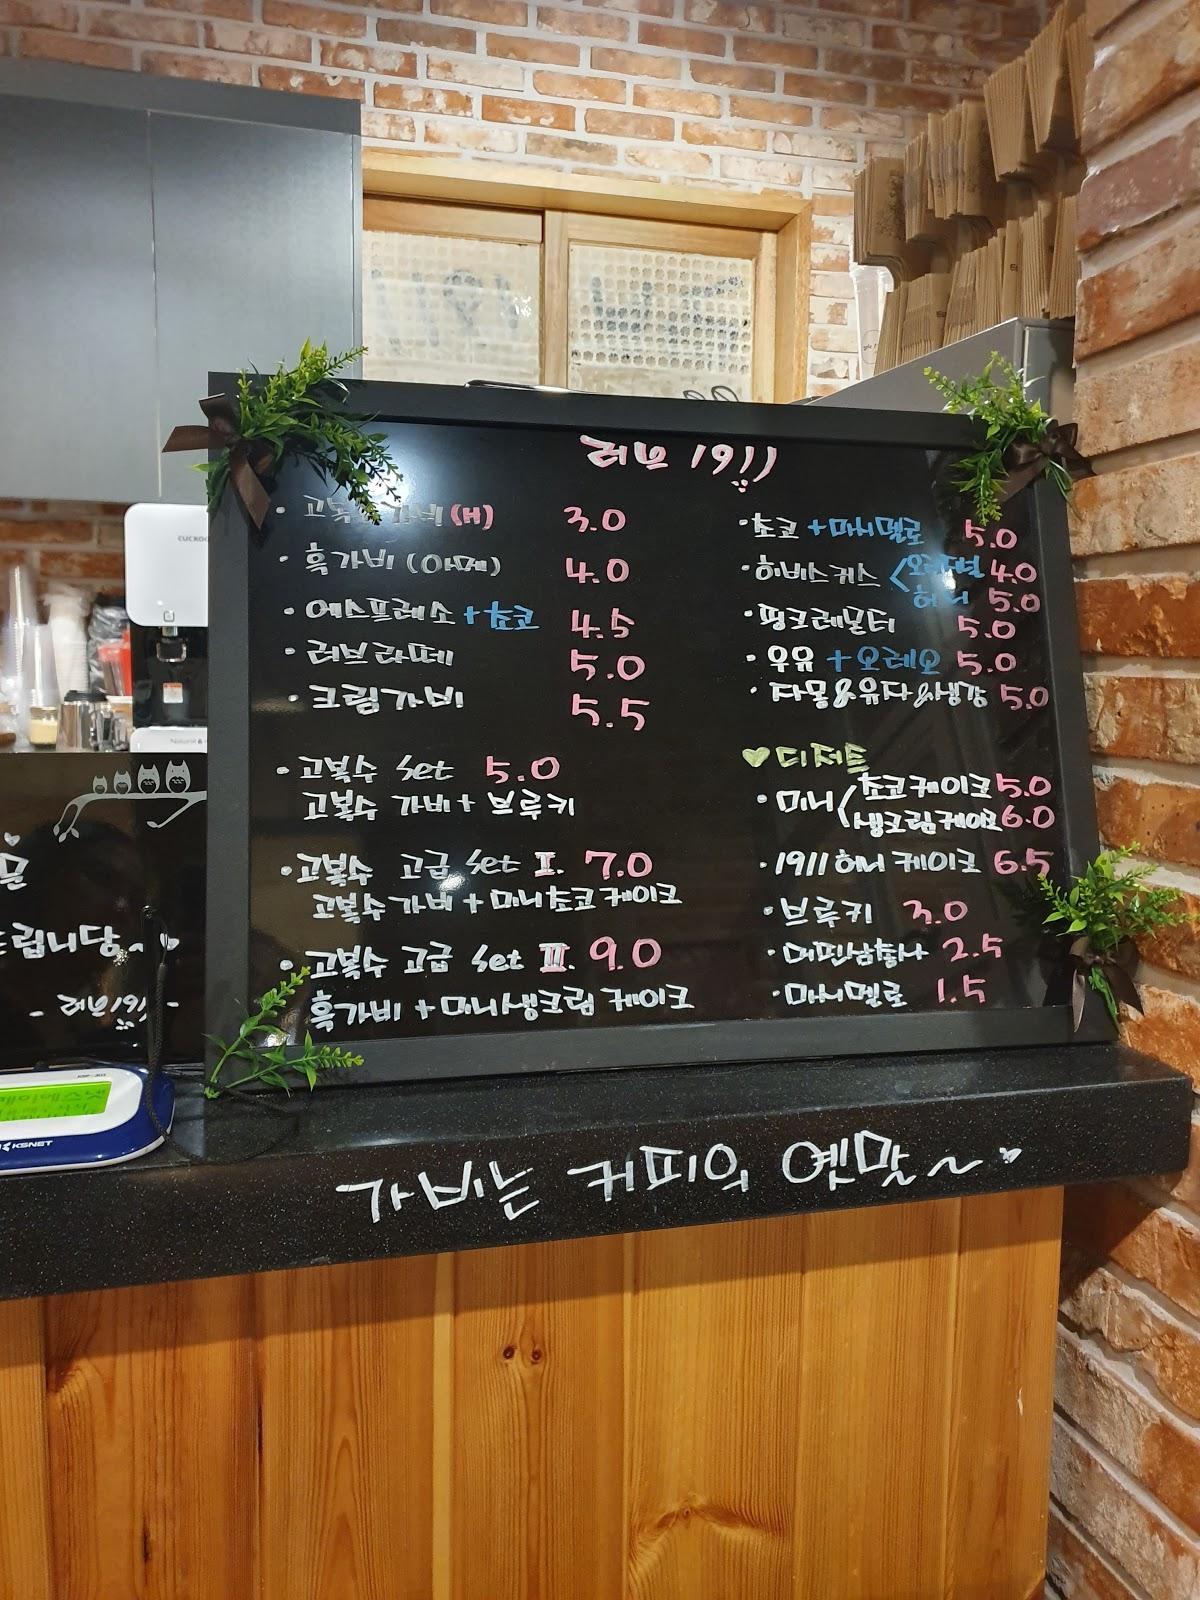 러브 1911
· 고복수 가비 (H) 3.0
· 흑가비 (아메) 4.0
· 에스프레소 + 초코 4.5
· 러브라떼 5.0
· 크림가비 5.5
· 고복수 set 5.0
고복수 가비 + 브루키
· 고복수 고급 set Ⅱ. 7.0
고복수 가비 + 미니초코케이크
· 고복수 고급 set Ⅲ. 9.0
흑가비 + 미니생크림 케이크
· 초코 + 마시멜로 5.0
· 히비스커스 < 오리지널 4.0
허니 5.0
· 핑크레몬티 5.0
· 우유 + 오레오 5.0
· 자몽&유자&생강 5.0
♥ 디저트
· 미니 < 쵸코케이크 5.0
생크림케이크 6.0
· 1911 허니 케이크 6.5
· 브루키 3.0
· 더핀삼총나 2.5
· 마시멜로 1.5
가비는 커피의 옛말~
드립니당~
CUCKOO
KSNET